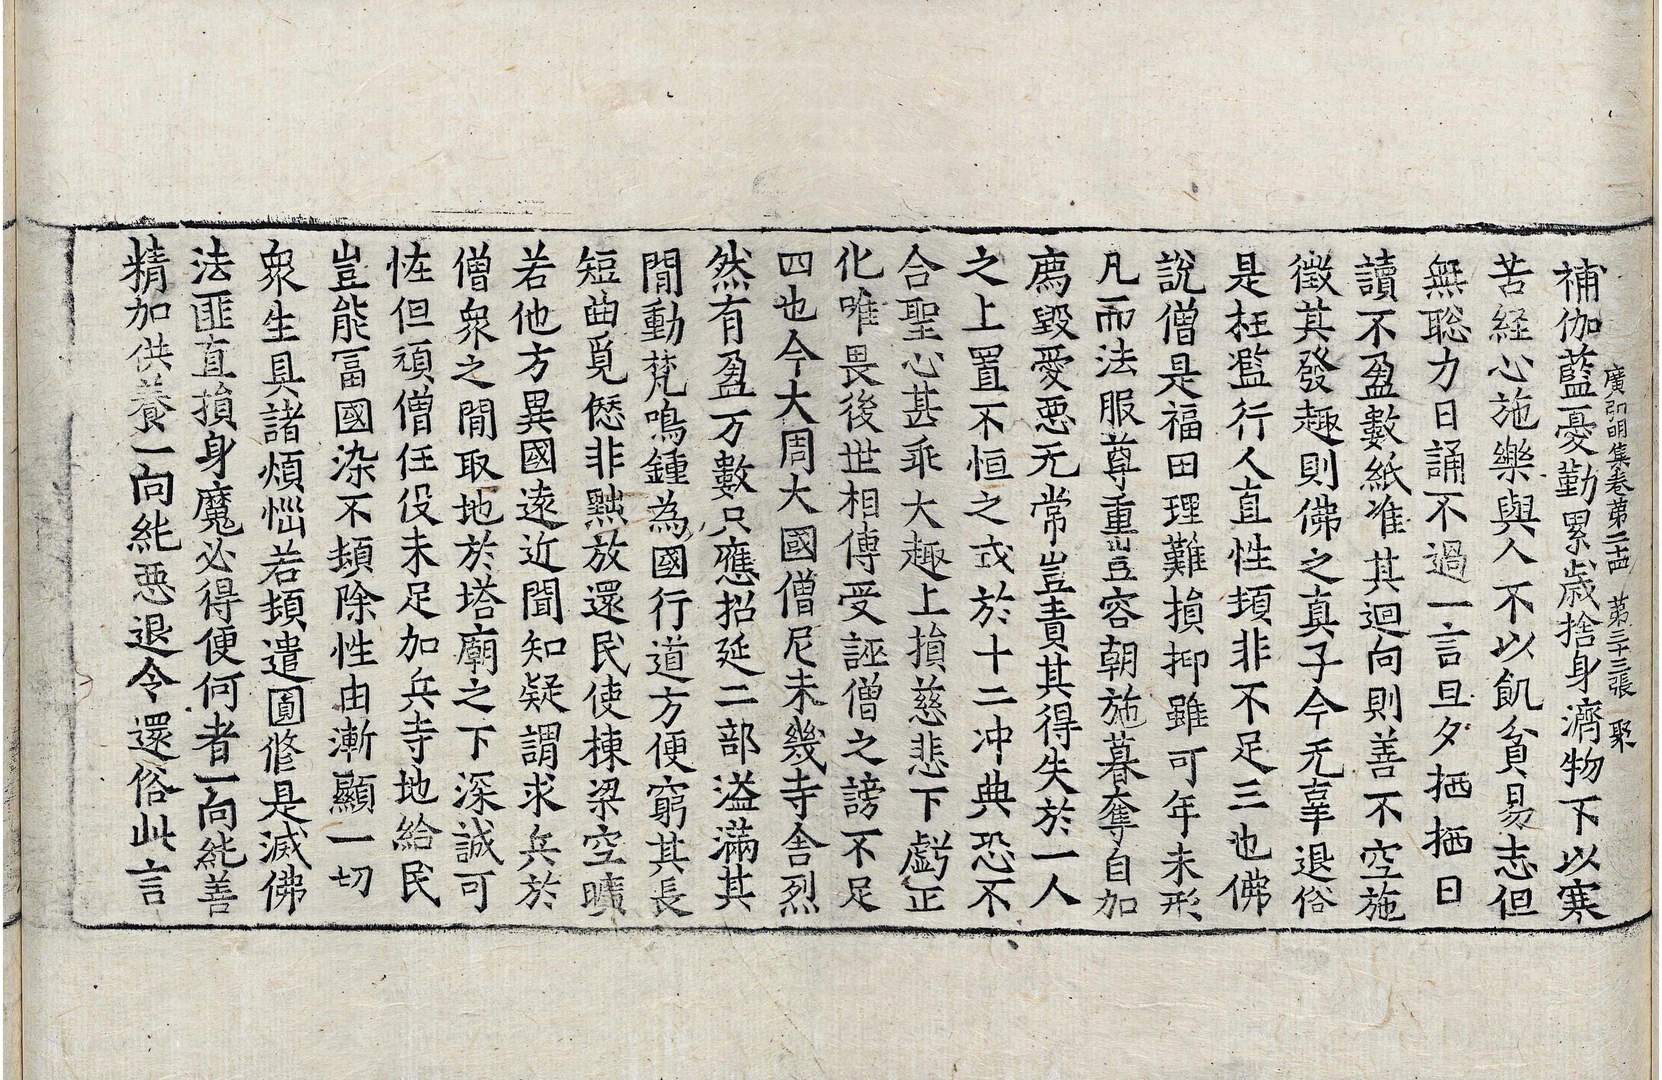 廣弘明集卷第二十四 第三十三張 聚
補伽藍憂勤累歲捨身濟物下以寒
苦経心施樂與人不以飢貧易志但
無聡力日誦不過一言旦夕栖栖日
讀不盈數紙准其迴向則善不空施
徵其發趣則佛之真子今无辜退俗
是枉濫行人直性頓非不足三也佛
說僧是福田理難損抑雖可年未形
凡而法服尊重豈容朝施暮奪自加
廌毀愛惡无常豈責其得失於一人
之上置不恒之式於十二冲典恐不
合聖心甚乖大趣上損慈悲下虧正
化唯畏後世相傳受誣僧之謗不足
四也今大周大國僧尼未幾寺舍烈
然有盈万數只應招延二部溢滿其
閒動梵鳴鍾為國行道方便窮其長
短曲覓愆非黜放還民使棟梁空曠
若他方異國遠近聞知疑謂求兵於
僧衆之閒取地於塔廟之下深誠可
恠但頑僧任役未足加兵寺地給民
豈能冨國染不頓除性由漸顯一切
衆生具諸煩惱若頓遣圎俢是滅佛
法匪直損身魔必得便何者一向純善
精加供養一向純惡退令還俗此言